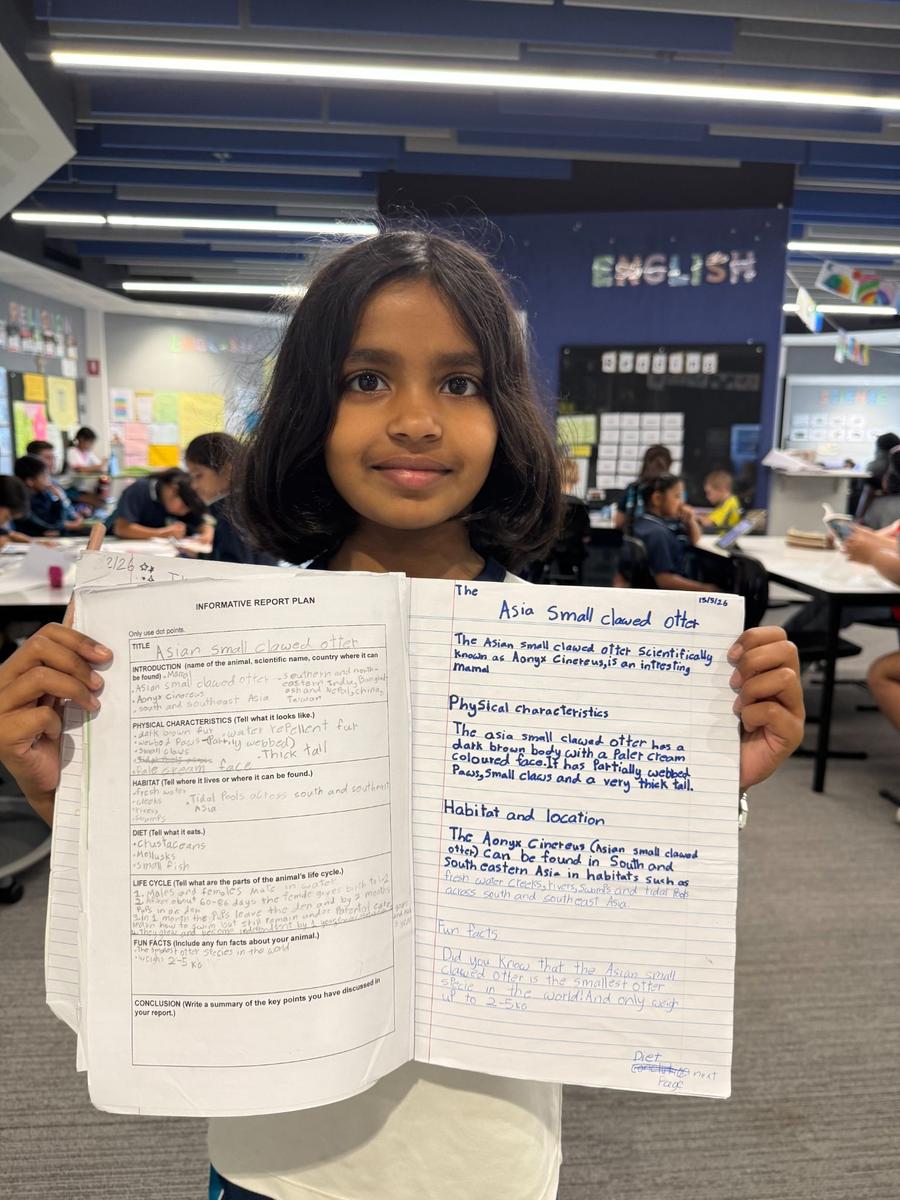 ENGLISH
RELIGION
2/26
INFORMATIVE REPORT PLAN
Only use dot points.
TITLE Asian small clawed otter
INTRODUCTION (name of the animal, scientific name, country where it can
be found)
• Asian small clawed otter
• Aonyx Cinereus
• south and southeast Asia
• southern and north-
eastern India, 
and Nepal, china,
Taiwan
PHYSICAL CHARACTERISTICS (Tell what it looks like.)
• dark brown fur • water repellent fur
• webbed Paws - Partily webbed)
• small claws
• Thick tall
• Pale cream face
HABITAT (Tell where it lives or where it can be found.)
• fresh water
• creeks
• rivers
• swamps
• Tidal Pools across south and southeast
Asia
DIET (Tell what it eats.)
• Crustaceans
• Mollusks
• Small fish
LIFE CYCLE (Tell what are the parts of the animal's life cycle.)
1. Males and females mate in water
2. After about 60-86 days the female gives birth to 1-2
PuPs in a den
3. In 1 month the PuPs leave the den and by 2 months
learn how to swim but still remain under Parental care
4. They grow and become independent by 1 year
FUN FACTS (Include any fun facts about your animal.)
• the smallest otter species in the world
• weighs 2-5 kg
CONCLUSION (Write a summary of the key points you have discussed in
your report.)
The
13/3/26
Asia small clawed otter
The Asian small clawed otter scientifically
known as Aonyx Cinereus, is an intresting
mamal
Physical characteristics
The asia small clawed otter has a
dark brown body with a Paler cream
coloured face. It has Partially webbed
Paws, small claws and a very thick tail.
Habitat and location
The Aonyx Cinereus (Asian small clawed
otter) can be found in South and
southeastern Asia in habitats such as
fresh water creeks, rivers, swomps and tidal Pools
across south and southeast Asia.
Fun facts
Did you know that the Asian small
clawed otter is the smallest otter
specie in the world! And only weigh
up to 2-5kg
Diet
next
Page